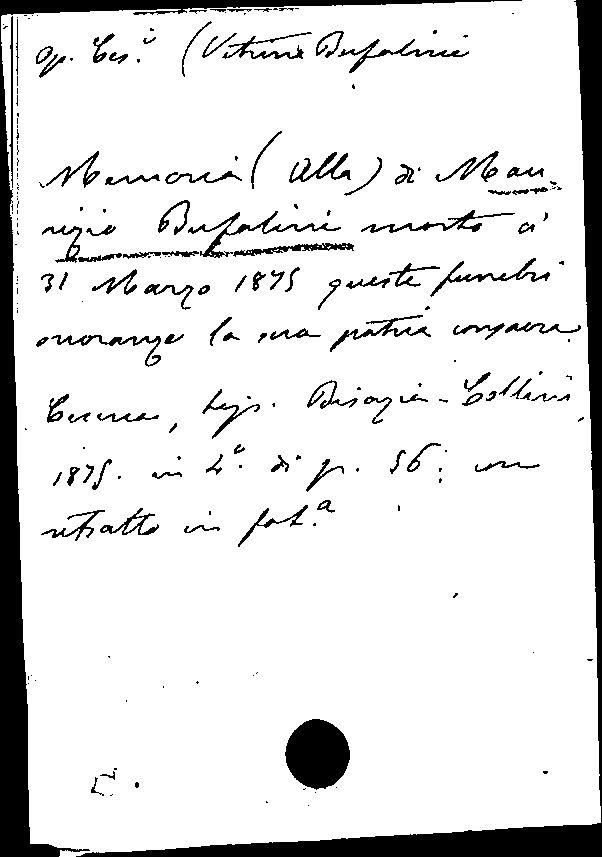 Op. Ces.i (Vetrina Bufalini
Memoria (Alla) di Mau-
rizio Bufalini morto ai
31 Marzo 1875 queste funebri
onoranze la sua patria consacra.
Cesena, tip. Biasini-Collini,
1875. in 4.° di p. 56: con
ritratto in fot.a